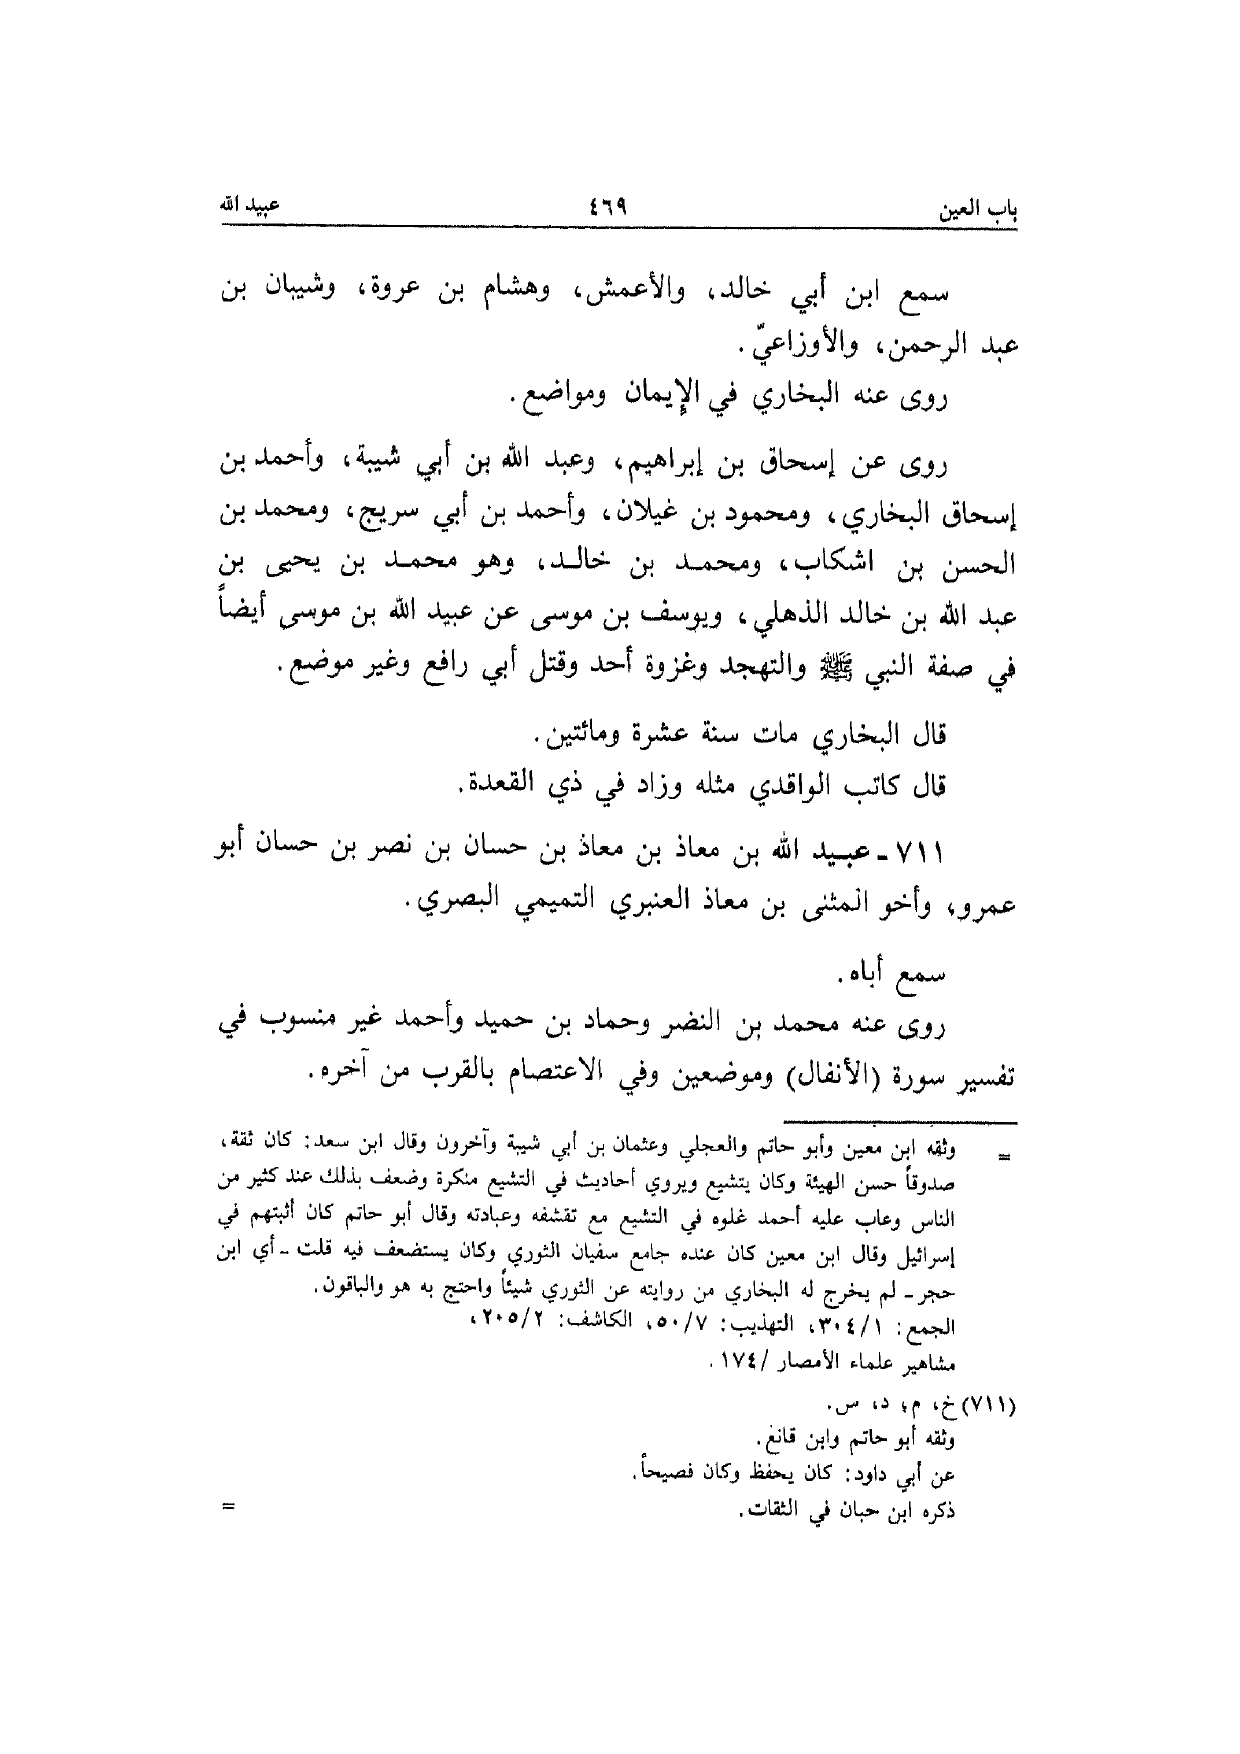 باب العين ٤٦٩ عبيد الله
سمع ابن أبي خالد، والأعمش، وهشام بن عروة، وشيبان بن
عبد الرحمن، والأوزاعيّ.
روى عنه البخاري في الإيمان ومواضع.
روى عن إسحاق بن إبراهيم، وعبد الله بن أبي شيبة، وأحمد بن
إسحاق البخاري، ومحمود بن غيلان، وأحمد بن أبي سريج، ومحمد بن
الحسن بن اشكاب، ومحمد بن خالد، وهو محمد بن يحيى بن
عبد الله بن خالد الذهلي، ويوسف بن موسى عن عبيد الله بن موسى أيضاً
في صفة النبي ﷺ والتهجد وغزوة أحد وقتل أبي رافع وغير موضع.
قال البخاري مات سنة عشرة ومائتين.
قال كاتب الواقدي مثله وزاد في ذي القعدة.
٧١١ - عبيد الله بن معاذ بن معاذ بن حسان بن نصر بن حسان أبو
عمرو، وأخو المثنى بن معاذ العنبري التميمي البصري.
سمع أباه.
روى عنه محمد بن النضر وحماد بن حميد وأحمد غير منسوب في
تفسير سورة (الأنفال) وموضعين وفي الاعتصام بالقرب من آخره.
= وثقه ابن معين وأبو حاتم والعجلي وعثمان بن أبي شيبة وآخرون وقال ابن سعد: كان ثقة،
صدوقاً حسن الهيئة وكان يتشيع ويروي أحاديث في التشيع منكرة وضعف بذلك عند كثير من
الناس وعاب عليه أحمد غلوه في التشيع مع تقشفه وعبادته وقال أبو حاتم كان أثبتهم في
إسرائيل وقال ابن معين كان عنده جامع سفيان الثوري وكان يستضعف فيه قلت - أي ابن
حجر - لم يخرج له البخاري من روايته عن الثوري شيئاً واحتج به هو والباقون.
الجمع: ٣٠٤/١، التهذيب: ٥٠/٧، الكاشف: ٢٠٥/٢،
مشاهير علماء الأمصار /١٧٤.
(٧١١) خ، م، د، س.
وثقه أبو حاتم وابن قانع.
عن أبي داود: كان يحفظ وكان فصيحاً.
ذكره ابن حبان في الثقات. =